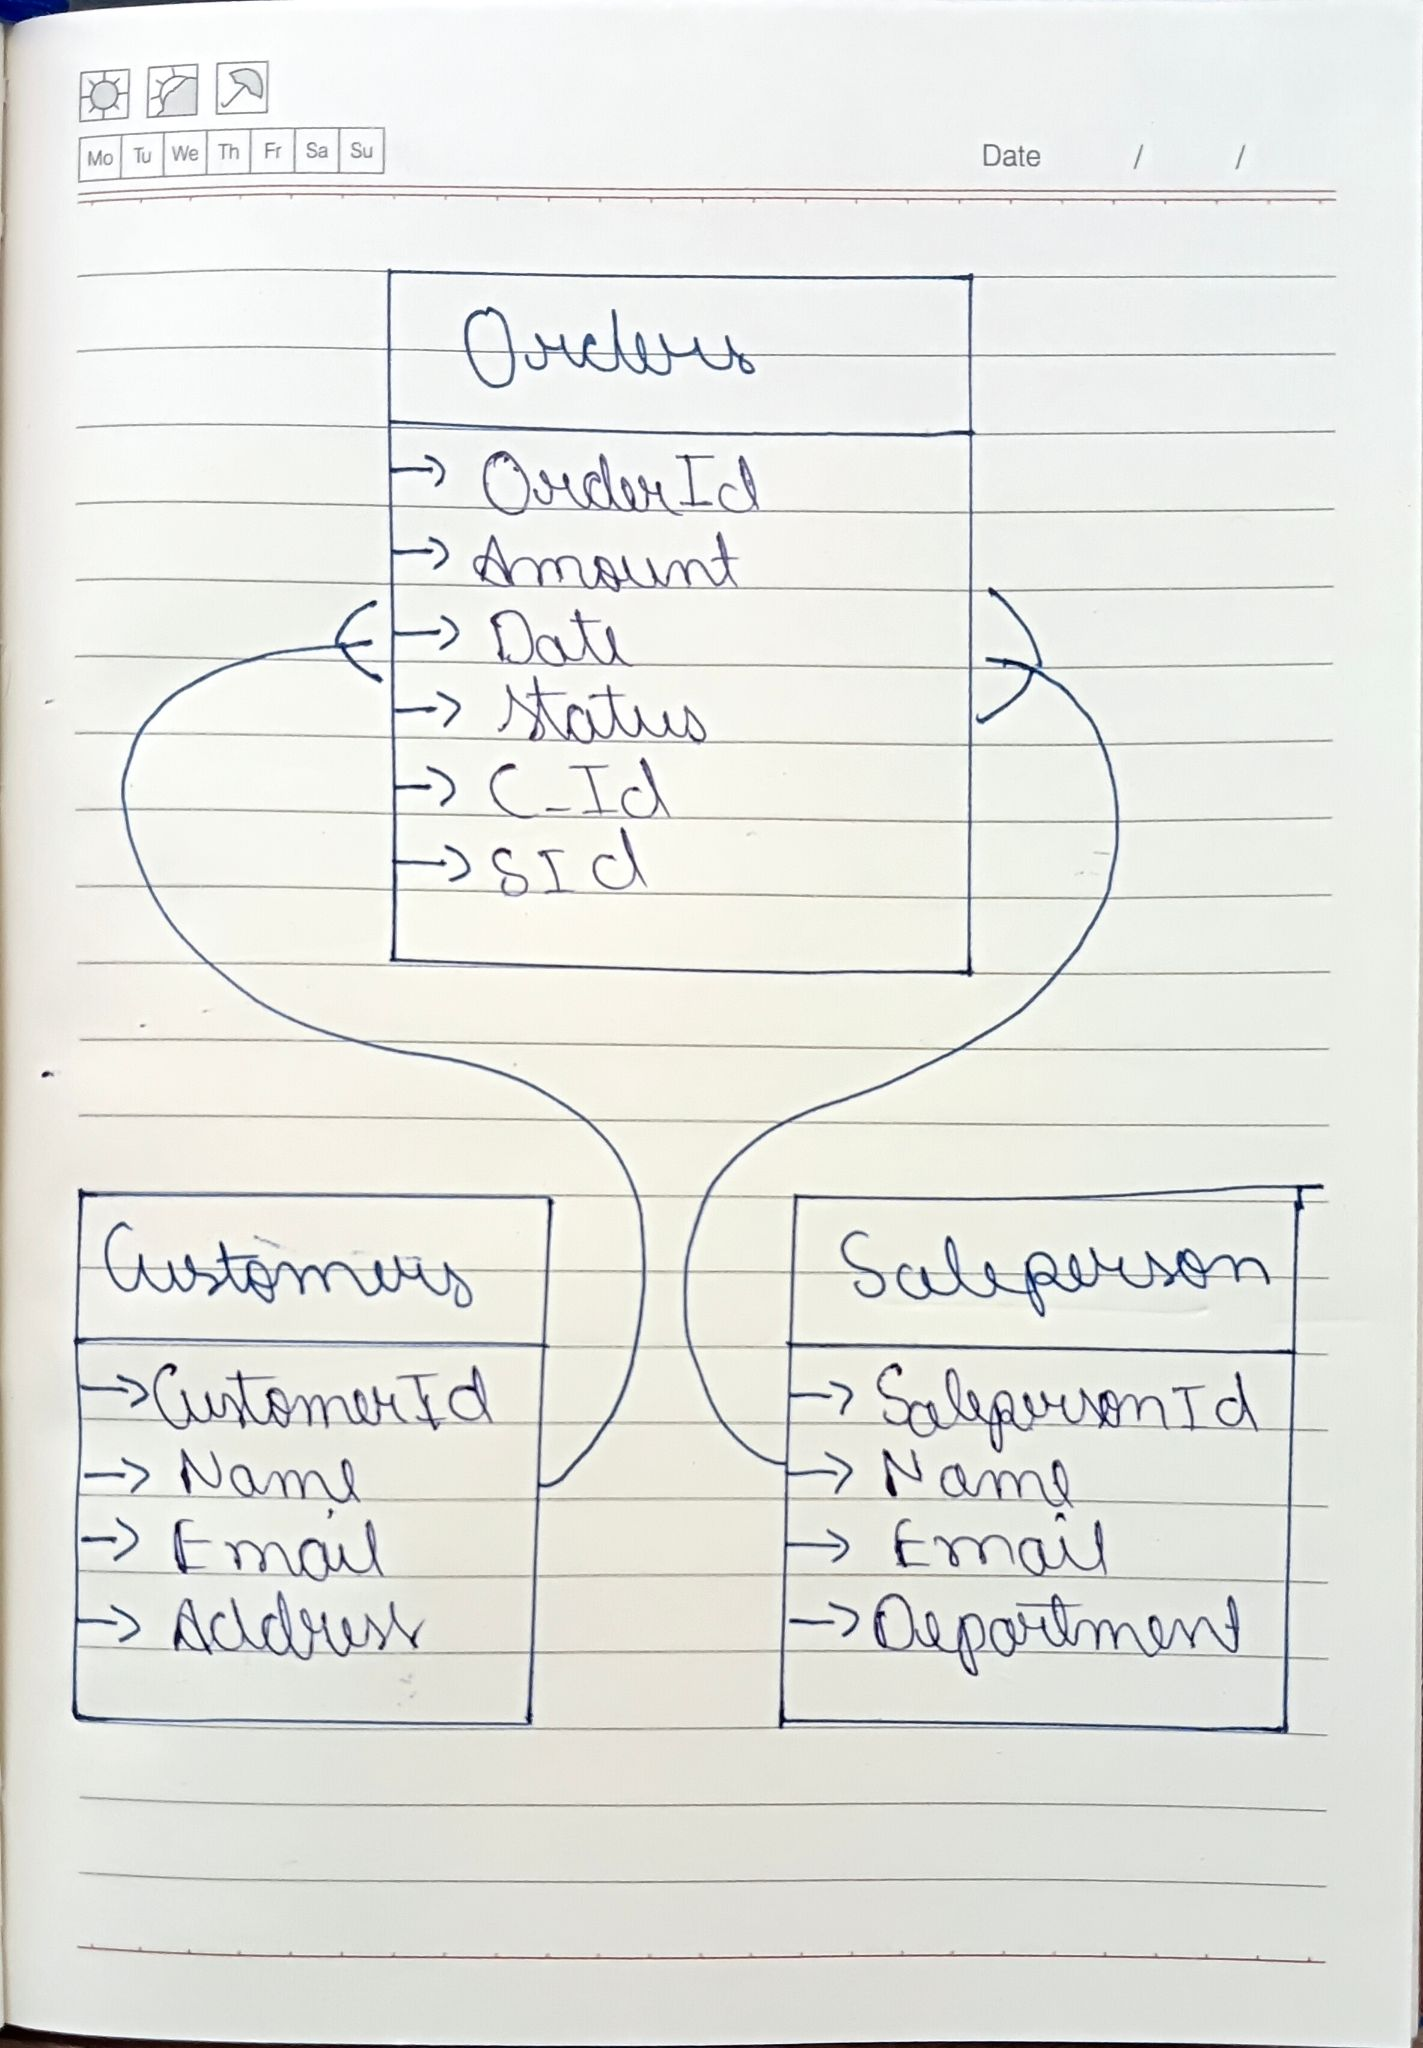 Mo Tu We Th Fr Sa Su
Date / /
Orders
→ OrderId
→ Amount
→ Date
→ Status
→ C_Id
→ SId
Customers
→ CustomerId
→ Name
→ Email
→ Address
Saleperson
→ SalepersonId
→ Name
→ Email
→ Department